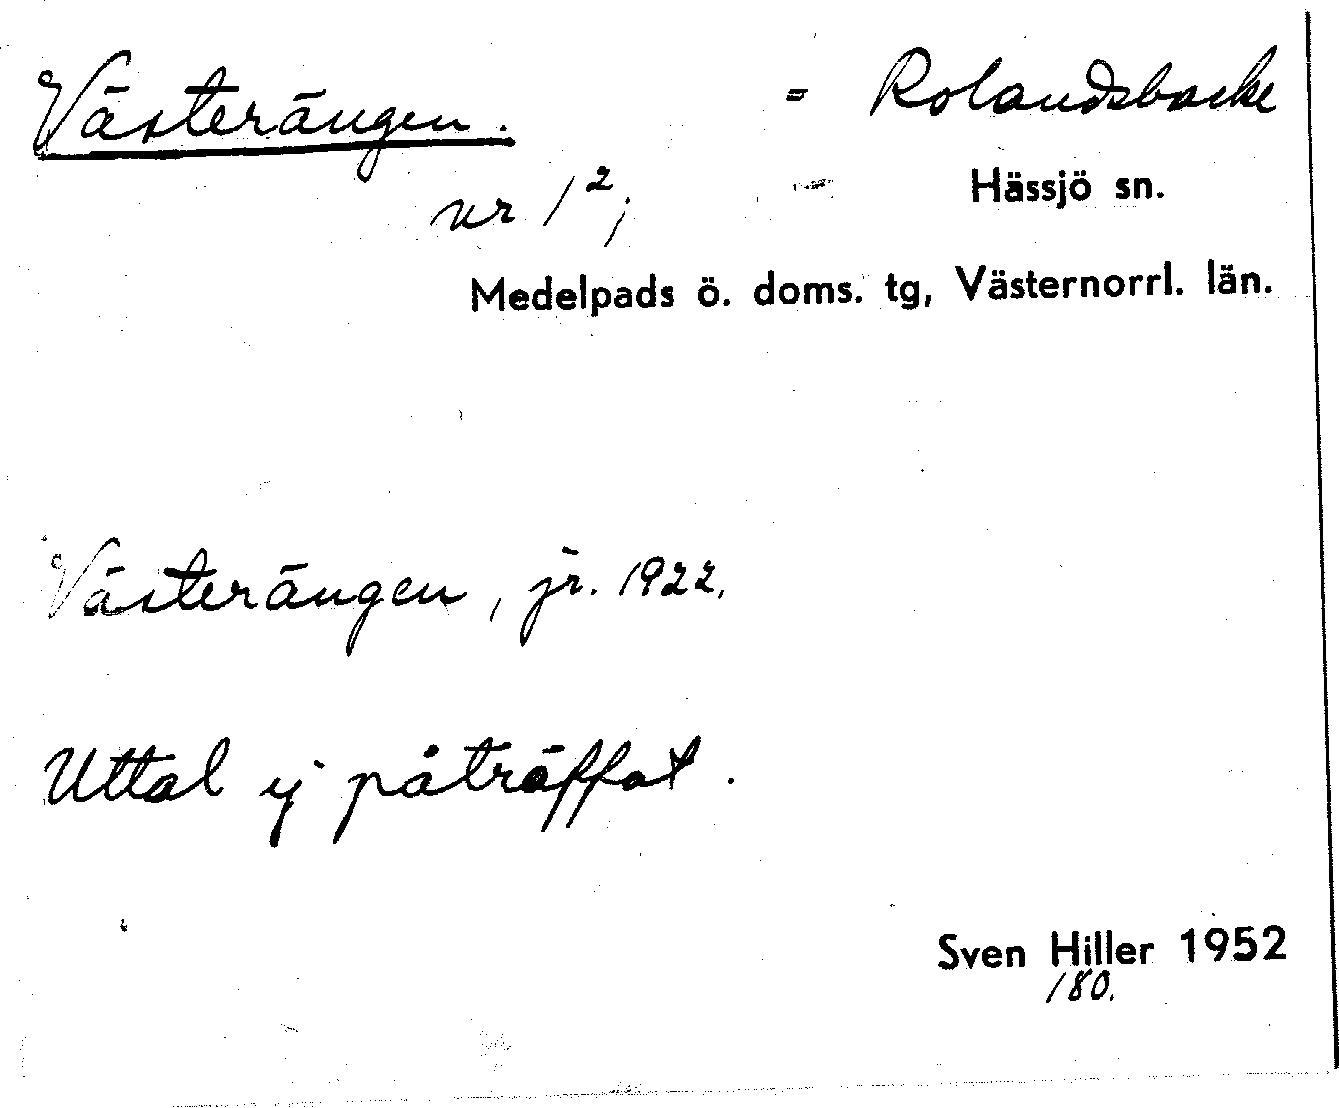 Västerängen. = Rolandsbacke
nr 1²; Hässjö sn.
Medelpads ö. doms. tg, Västernorrl. län.
Västerängen, jr. 1922.
Uttal ej påträffat.
Sven Hiller 1952
180.